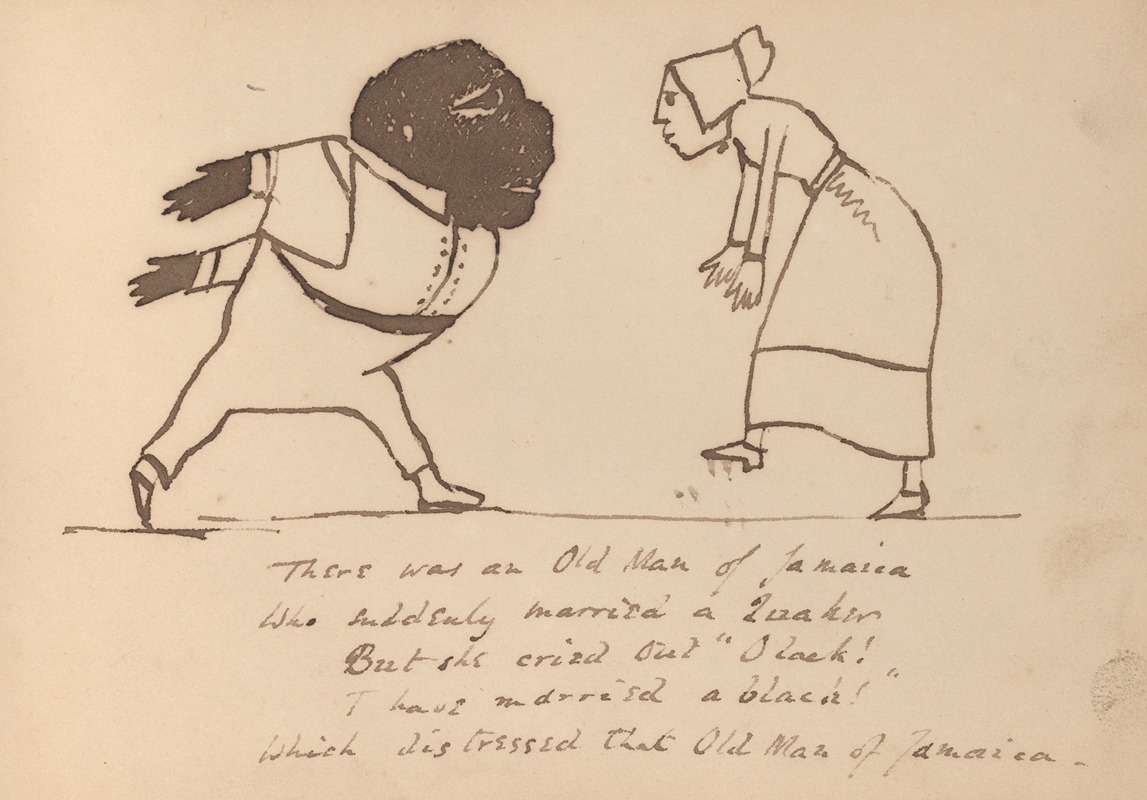 There was an Old Man of Jamaica
Who suddenly married a Quaker
But she cried out "O lack!
I have married a black!"
Which distressed that Old Man of Jamaica.